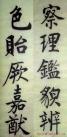 察理鑑貌辨
色貽厥嘉猷